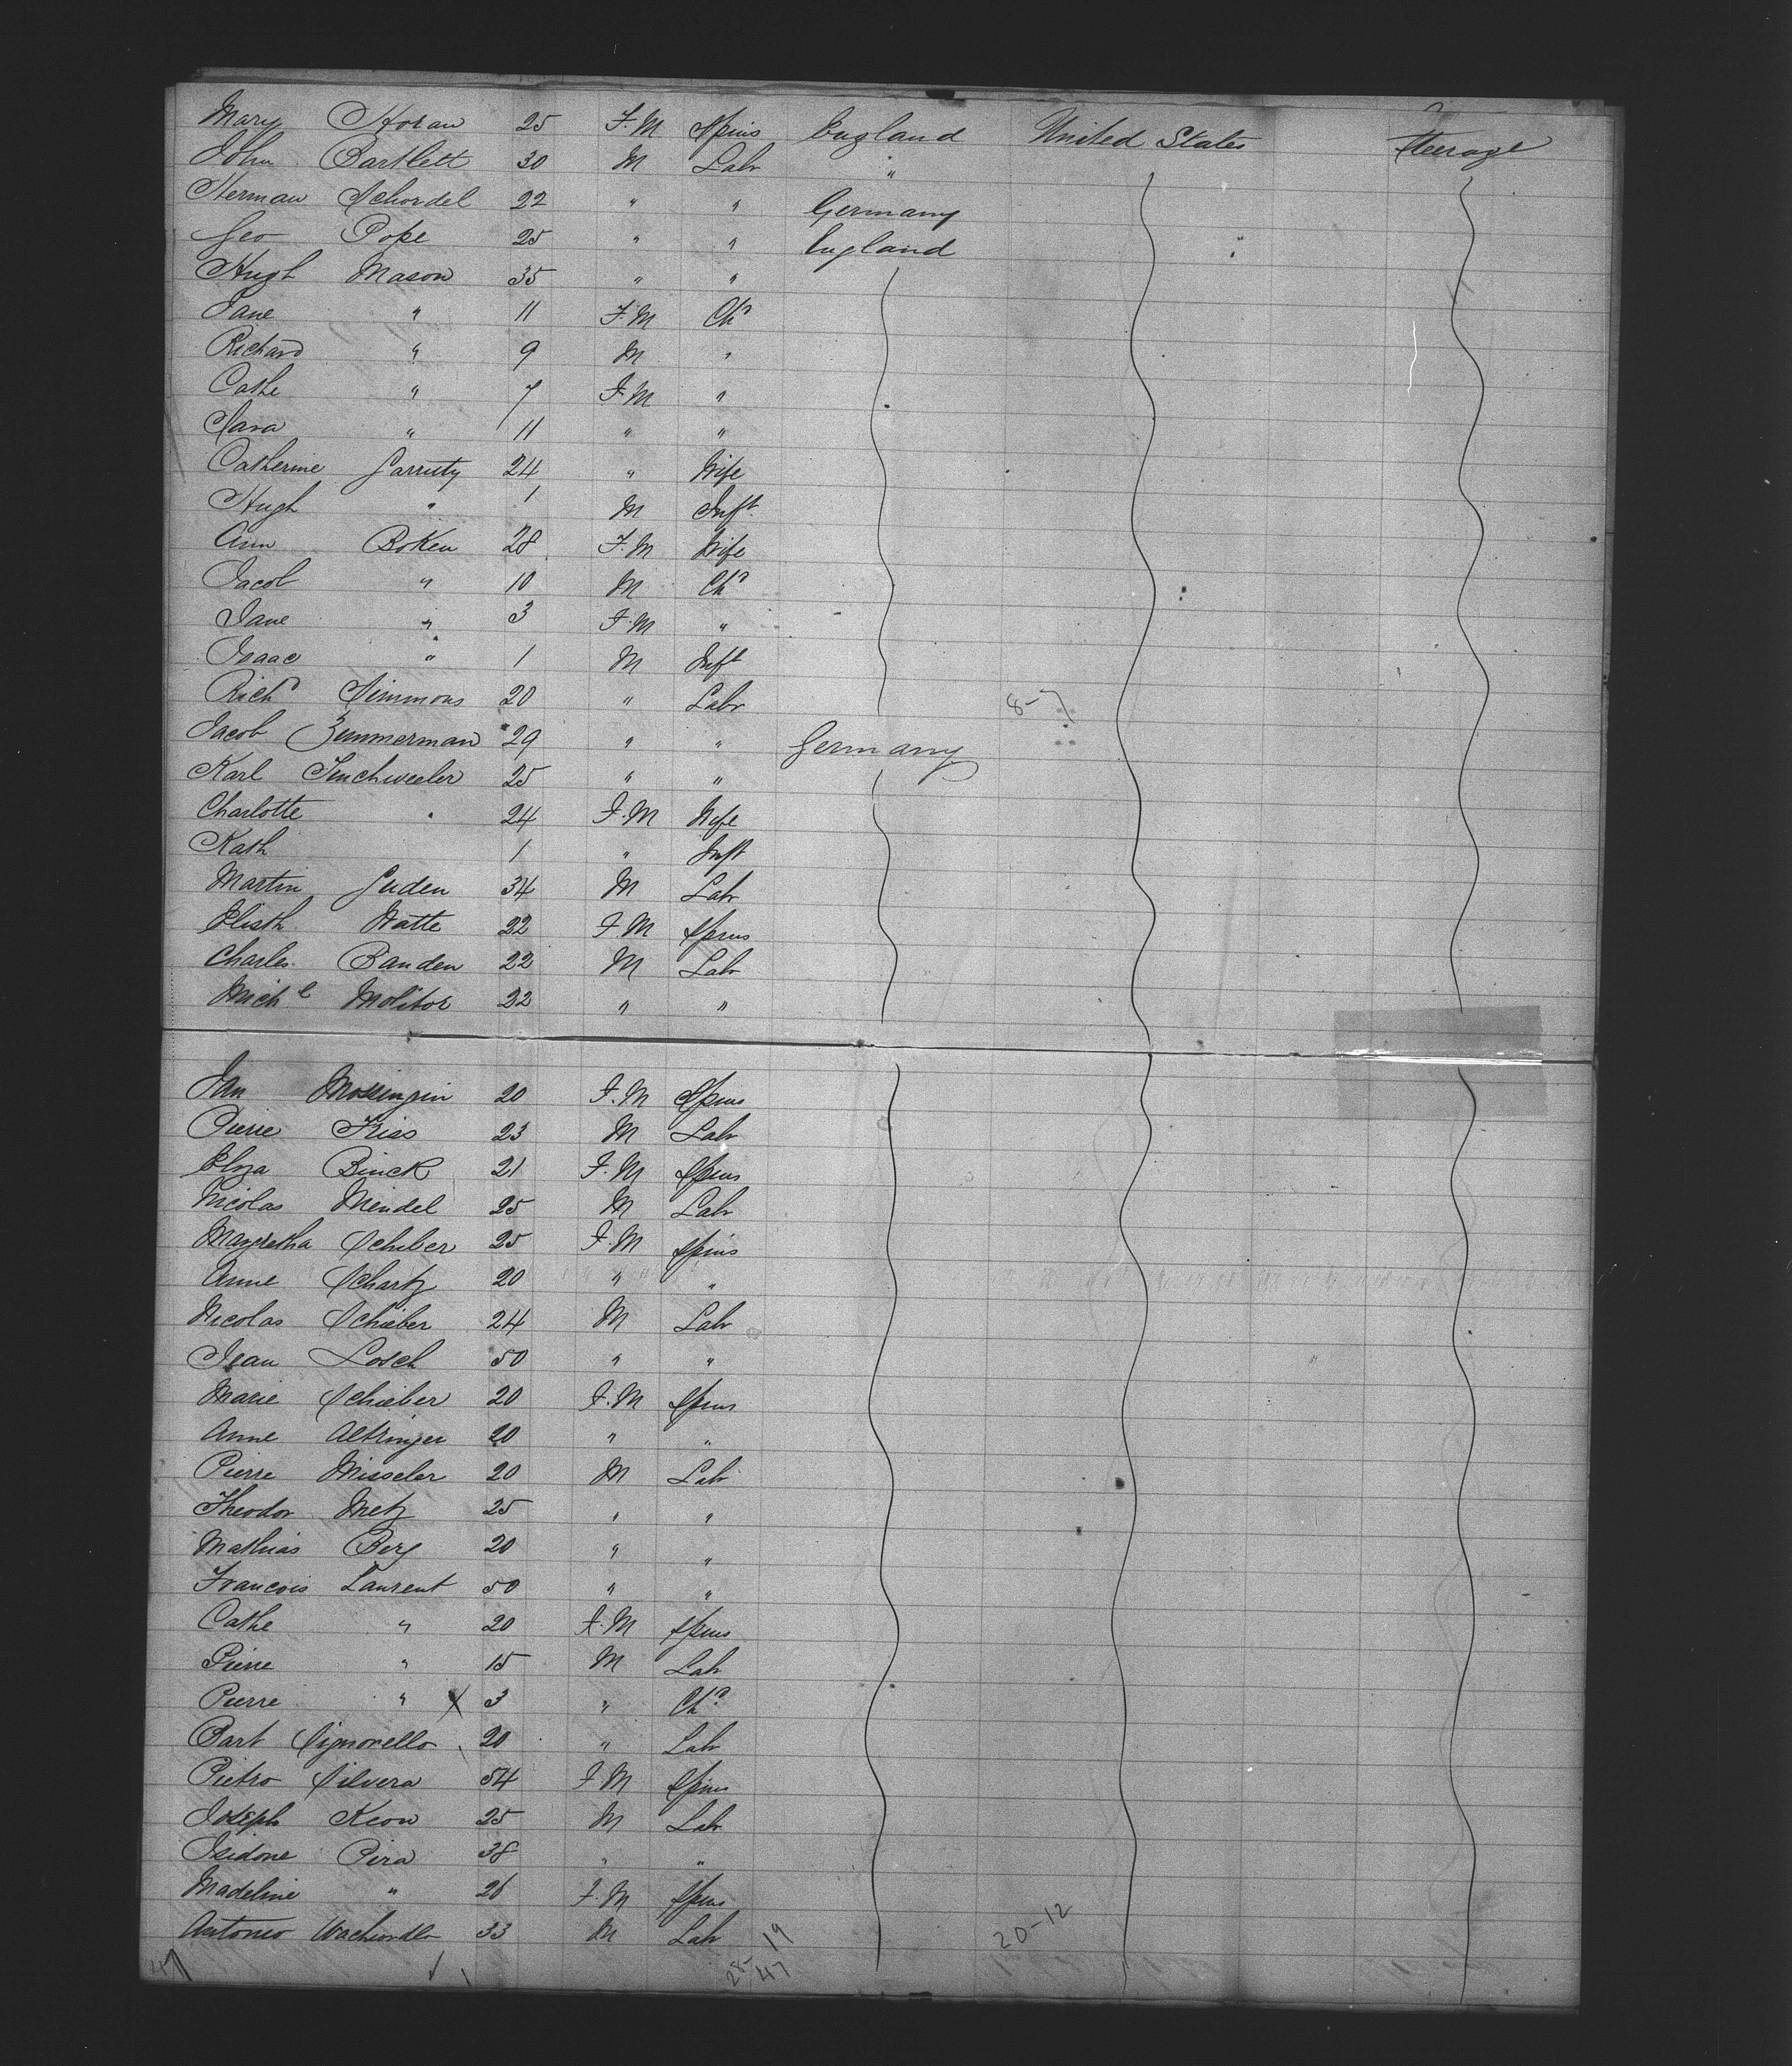 Mary Horan 25 F.M Spins England United States Steerage
John Bartlett 30 M Labr "
Herman Schordel 22 " " Germany
Geo Pope 25 " " England
Hugh Mason 35 " "
Jane " 11 F.M Chd
Richard " 9 M "
Cathe " 7 F.M "
Sara " 11 " "
Catherine Garruty 24 " Wife
Hugh " 1 M Inft
Ann Boken 28 F.M Wife
Jacob " 10 M Chd
Jane " 3 F.M "
Isaac " 1 M Inft
Richd Simmons 20 " Labr 8-7
Jacob Zimmerman 29 " " Germany
Karl 25 " "
Charlotte " 24 F.M Wife
Kath 1 " Inft
Martin Guden 34 M Labr
Elisth Watte 22 F.M Spins
Charles Banden 22 M Labr
Michl Molitor 22 " "
Jan 20 F.M Spins
Pierre Kiss 23 M Labr
Elga Binck 21 F.M Spins
Nicolas Meindel 25 M Labr
Margretha Schiber 25 F.M Spins
Anne Schartz 20 " "
Nicolas Schieber 24 M Labr
Jean Losch 50 " "
Marie Schieber 20 F.M Spins
Anne Altringer 20 " "
Pierre Misseler 20 M Labr
Theodor Metz 25 " "
Mathias Berg 20 " "
Francois Laurent 50 " "
Cathe " 20 F.M Spins
Pierre " 15 M Labr
Pierre " X 3 " Chd
Bart Signorello 20 " Labr
Pietro Silvera 54 F.M Spins
Joseph Keow 25 M Labr
Isidone Pira 38 " "
Madeline " 26 F.M Spins
Antonio 33 M Labr 19 20-12
47 28- 47